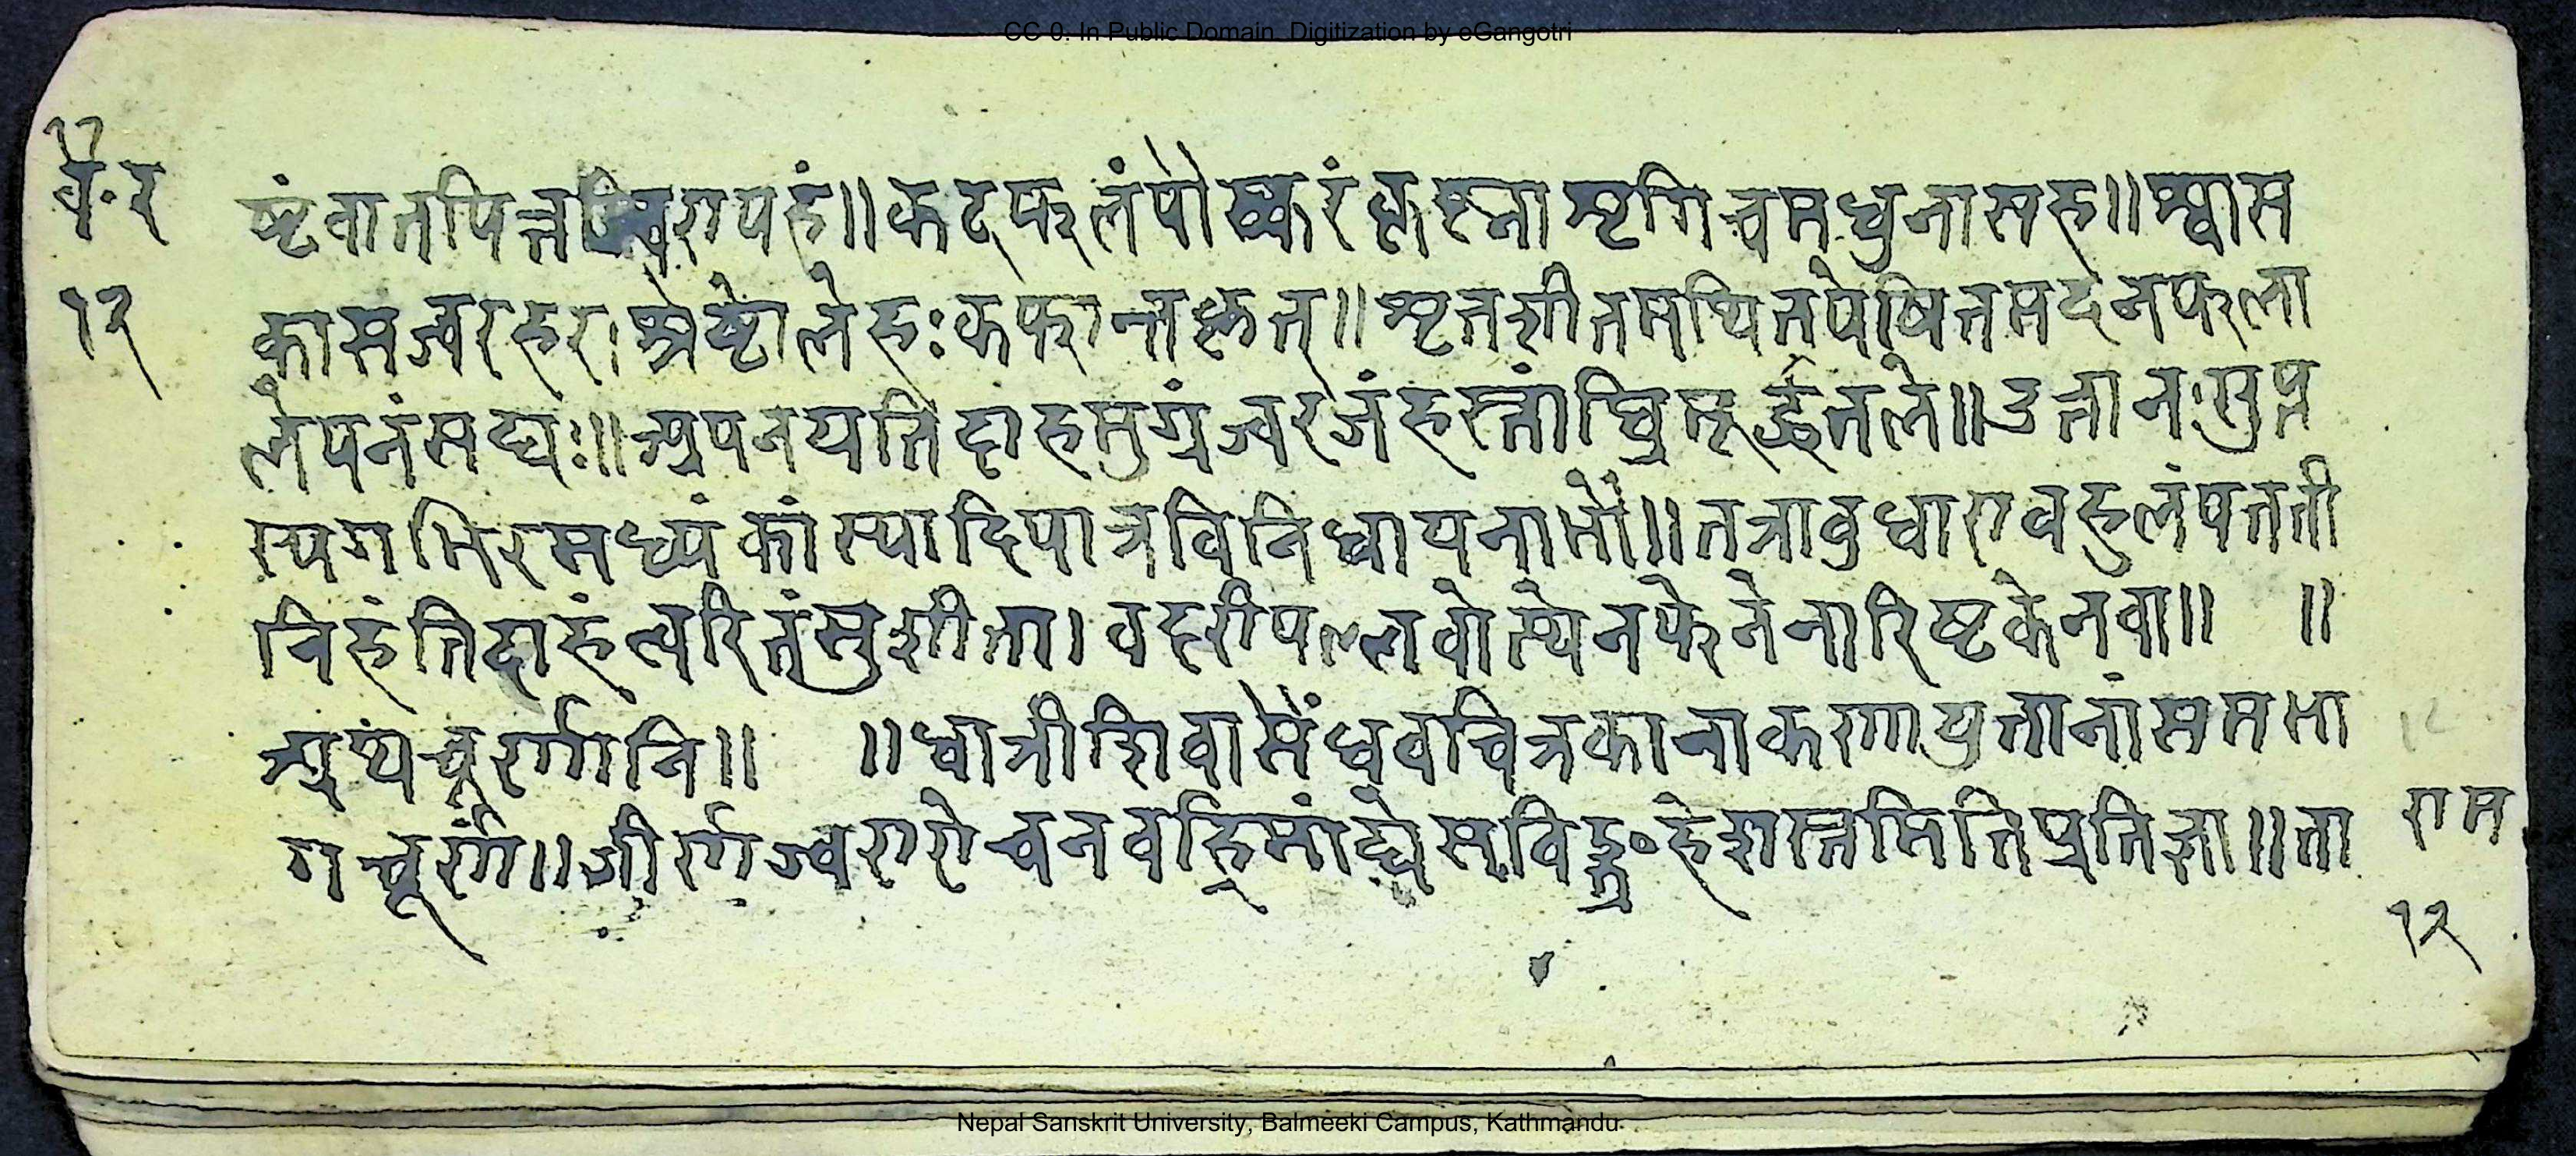 CC-0. In Public Domain. Digitization by eGangotri
वै॰र
१२
ष्टंवातपित्तज्वरापहं॥कट्फलंपौष्करंकृष्नाशृगिचमधुनासह॥श्वास
कासज्वरहरःश्रेष्टोलेहःकफान्तकृत्॥शृतशीतमथितपेषितमदनफला
लेपनंसद्यः॥अपनयतिदाहमुग्रंज्वरजंहस्तांघ्रिमूर्द्धतले॥उत्तानःसुप्त
स्यगभिरमध्यंकांस्यादिपात्रविनिधायनाभौ॥तत्रावुधारावहुलंपतती
निहंतिदाहंत्वरितंसुशीता।वदरीपल्लवोस्येनफेनेनारिष्टकेनवा॥ ॥
अथचूर्णानि॥ ॥धात्रीशिवासैंधवचित्रकानाकणायुतानांसमभा
गचूर्णं॥जीर्णज्वरारोचनवह्निमांद्येसविड्ग्रहेशस्तमितिप्रतिज्ञा॥ता
राम
१२
Nepal Sanskrit University, Balmeeki Campus, Kathmandu